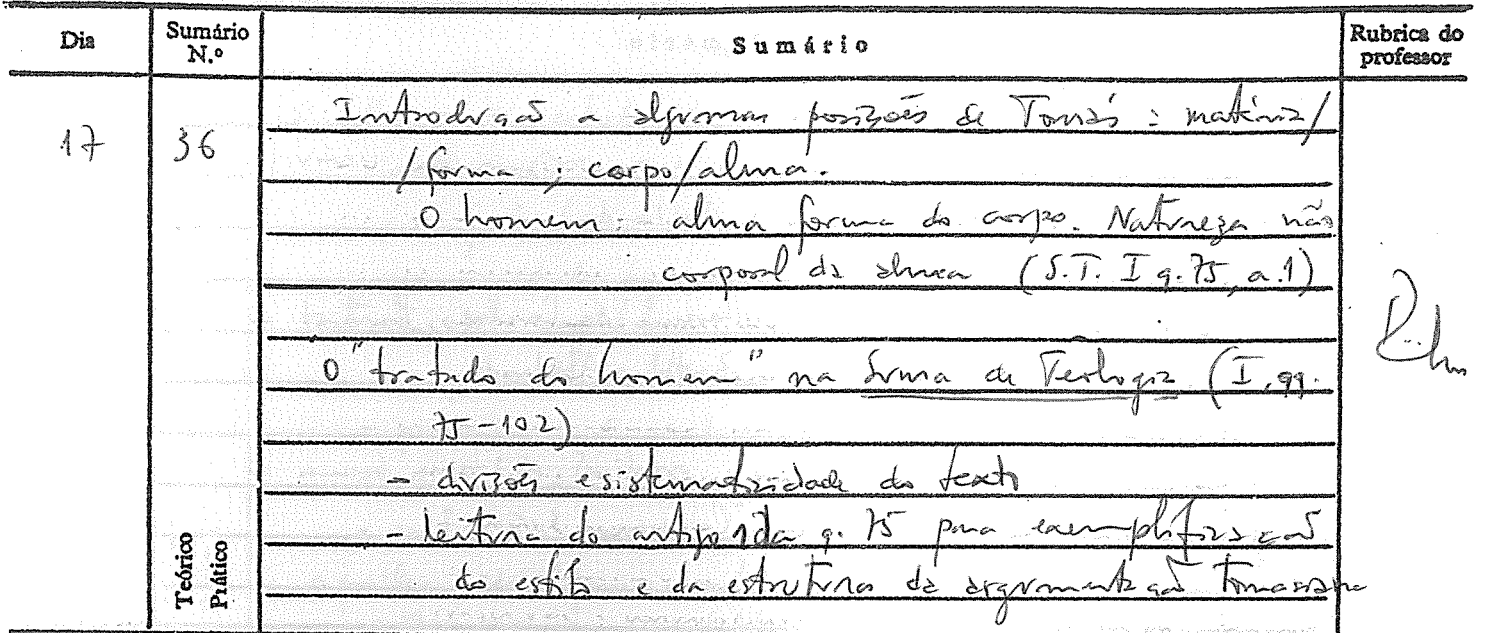 Dia
Sumário N.º
Sumário
Rubrica do professor
17
36
Introdução a algumas posições de Tomás: matéria/
/forma; corpo/alma.
O homem: alma forma do corpo. Natureza não
corporal da alma (S.T. I q. 75, a.1)
O "tratado do homem" na Suma de Teologia (I, qq.
75-102)
- divisões e sistematicidade do texto
- leitura do artigo 1 da q. 75 para exemplificação
do estilo e da estrutura da argumentação tomasiana
Teórico
Prático